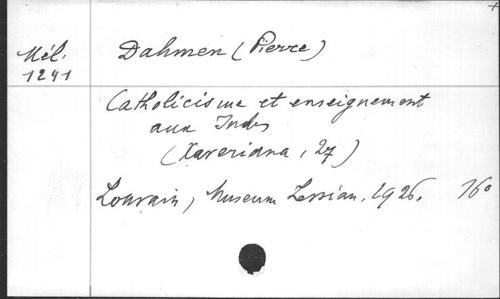 Mél.
1241
Dahmen (Pierre)
Catholicisme et enseignement
aux Indes
(Xaveriana, 27)
Louvain, Museum Lessian. 1926. 16°